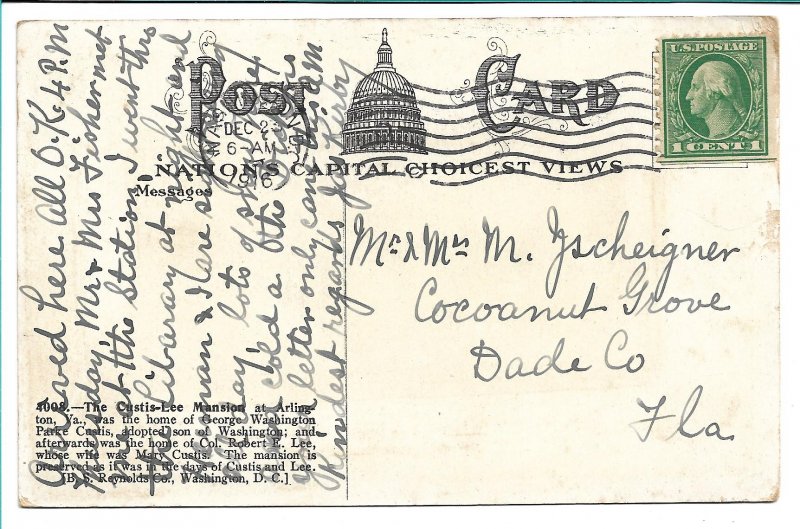 POST CARD
NATION'S CAPITAL CHOICEST VIEWS
Messages
U.S. POSTAGE
1 CENT 1
DEC 23
6-AM
1916
Arrived here All O.K. 4 P.M
Thursday. Mr & Mrs Fisher met
me at the Station, I went thro
the Librarary at night and
& I are
to day lots of
cold
letter only came this AM
Kindest regards Jas Kirby
Mr & Mrs M. Zscheigner
Cocoanut Grove
Dade Co
Fla
4008.—The Custis-Lee Mansion at Arling-
ton, Va., was the home of George Washington
Parke Custis, adopted son of Washington; and
afterwards was the home of Col. Robert E. Lee,
whose wife was Mary Custis. The mansion is
preserved as it was in the days of Custis and Lee.
[B. S. Reynolds Co., Washington, D. C.]